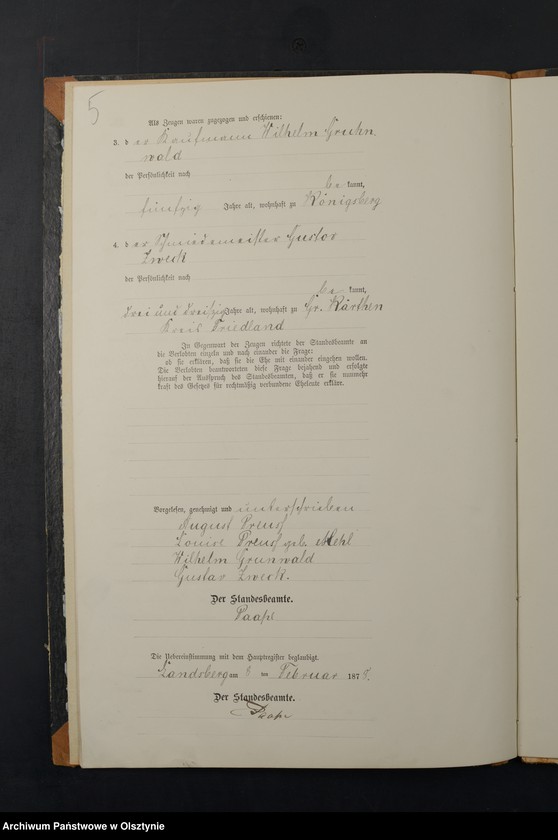 5
Als Zeugen waren zugezogen und erschienen:
3. der Kaufmann Wilhelm Gruhn
wald
der Persönlichkeit nach
be kannt,
fünfzig Jahre alt, wohnhaft zu Königsberg
4. der Schmiedemeister Gustav
Zweck
der Persönlichkeit nach
be kannt,
drei und dreißig Jahre alt, wohnhaft zu Gr. Kärthen
Kreis Friedland
In Gegenwart der Zeugen richtete der Standesbeamte an
die Verlobten einzeln und nach einander die Frage:
ob sie erklären, daß sie die Ehe mit einander eingehen wollen.
Die Verlobten beantworteten diese Frage bejahend und erfolgte
hierauf der Ausspruch des Standesbeamten, daß er sie nunmehr
kraft des Gesetzes für rechtmäßig verbundene Eheleute erkläre.
Vorgelesen, genehmigt und unterschrieben
August Preuß
Louise Preuß geb. Mehl
Wilhelm Grunwald
Gustav Zweck.
Der Standesbeamte.
Paape
Die Uebereinstimmung mit dem Hauptregister beglaubigt.
Landsberg am 8 ten Februar 1878.
Der Standesbeamte.
Paape
Archiwum Państwowe w Olsztynie